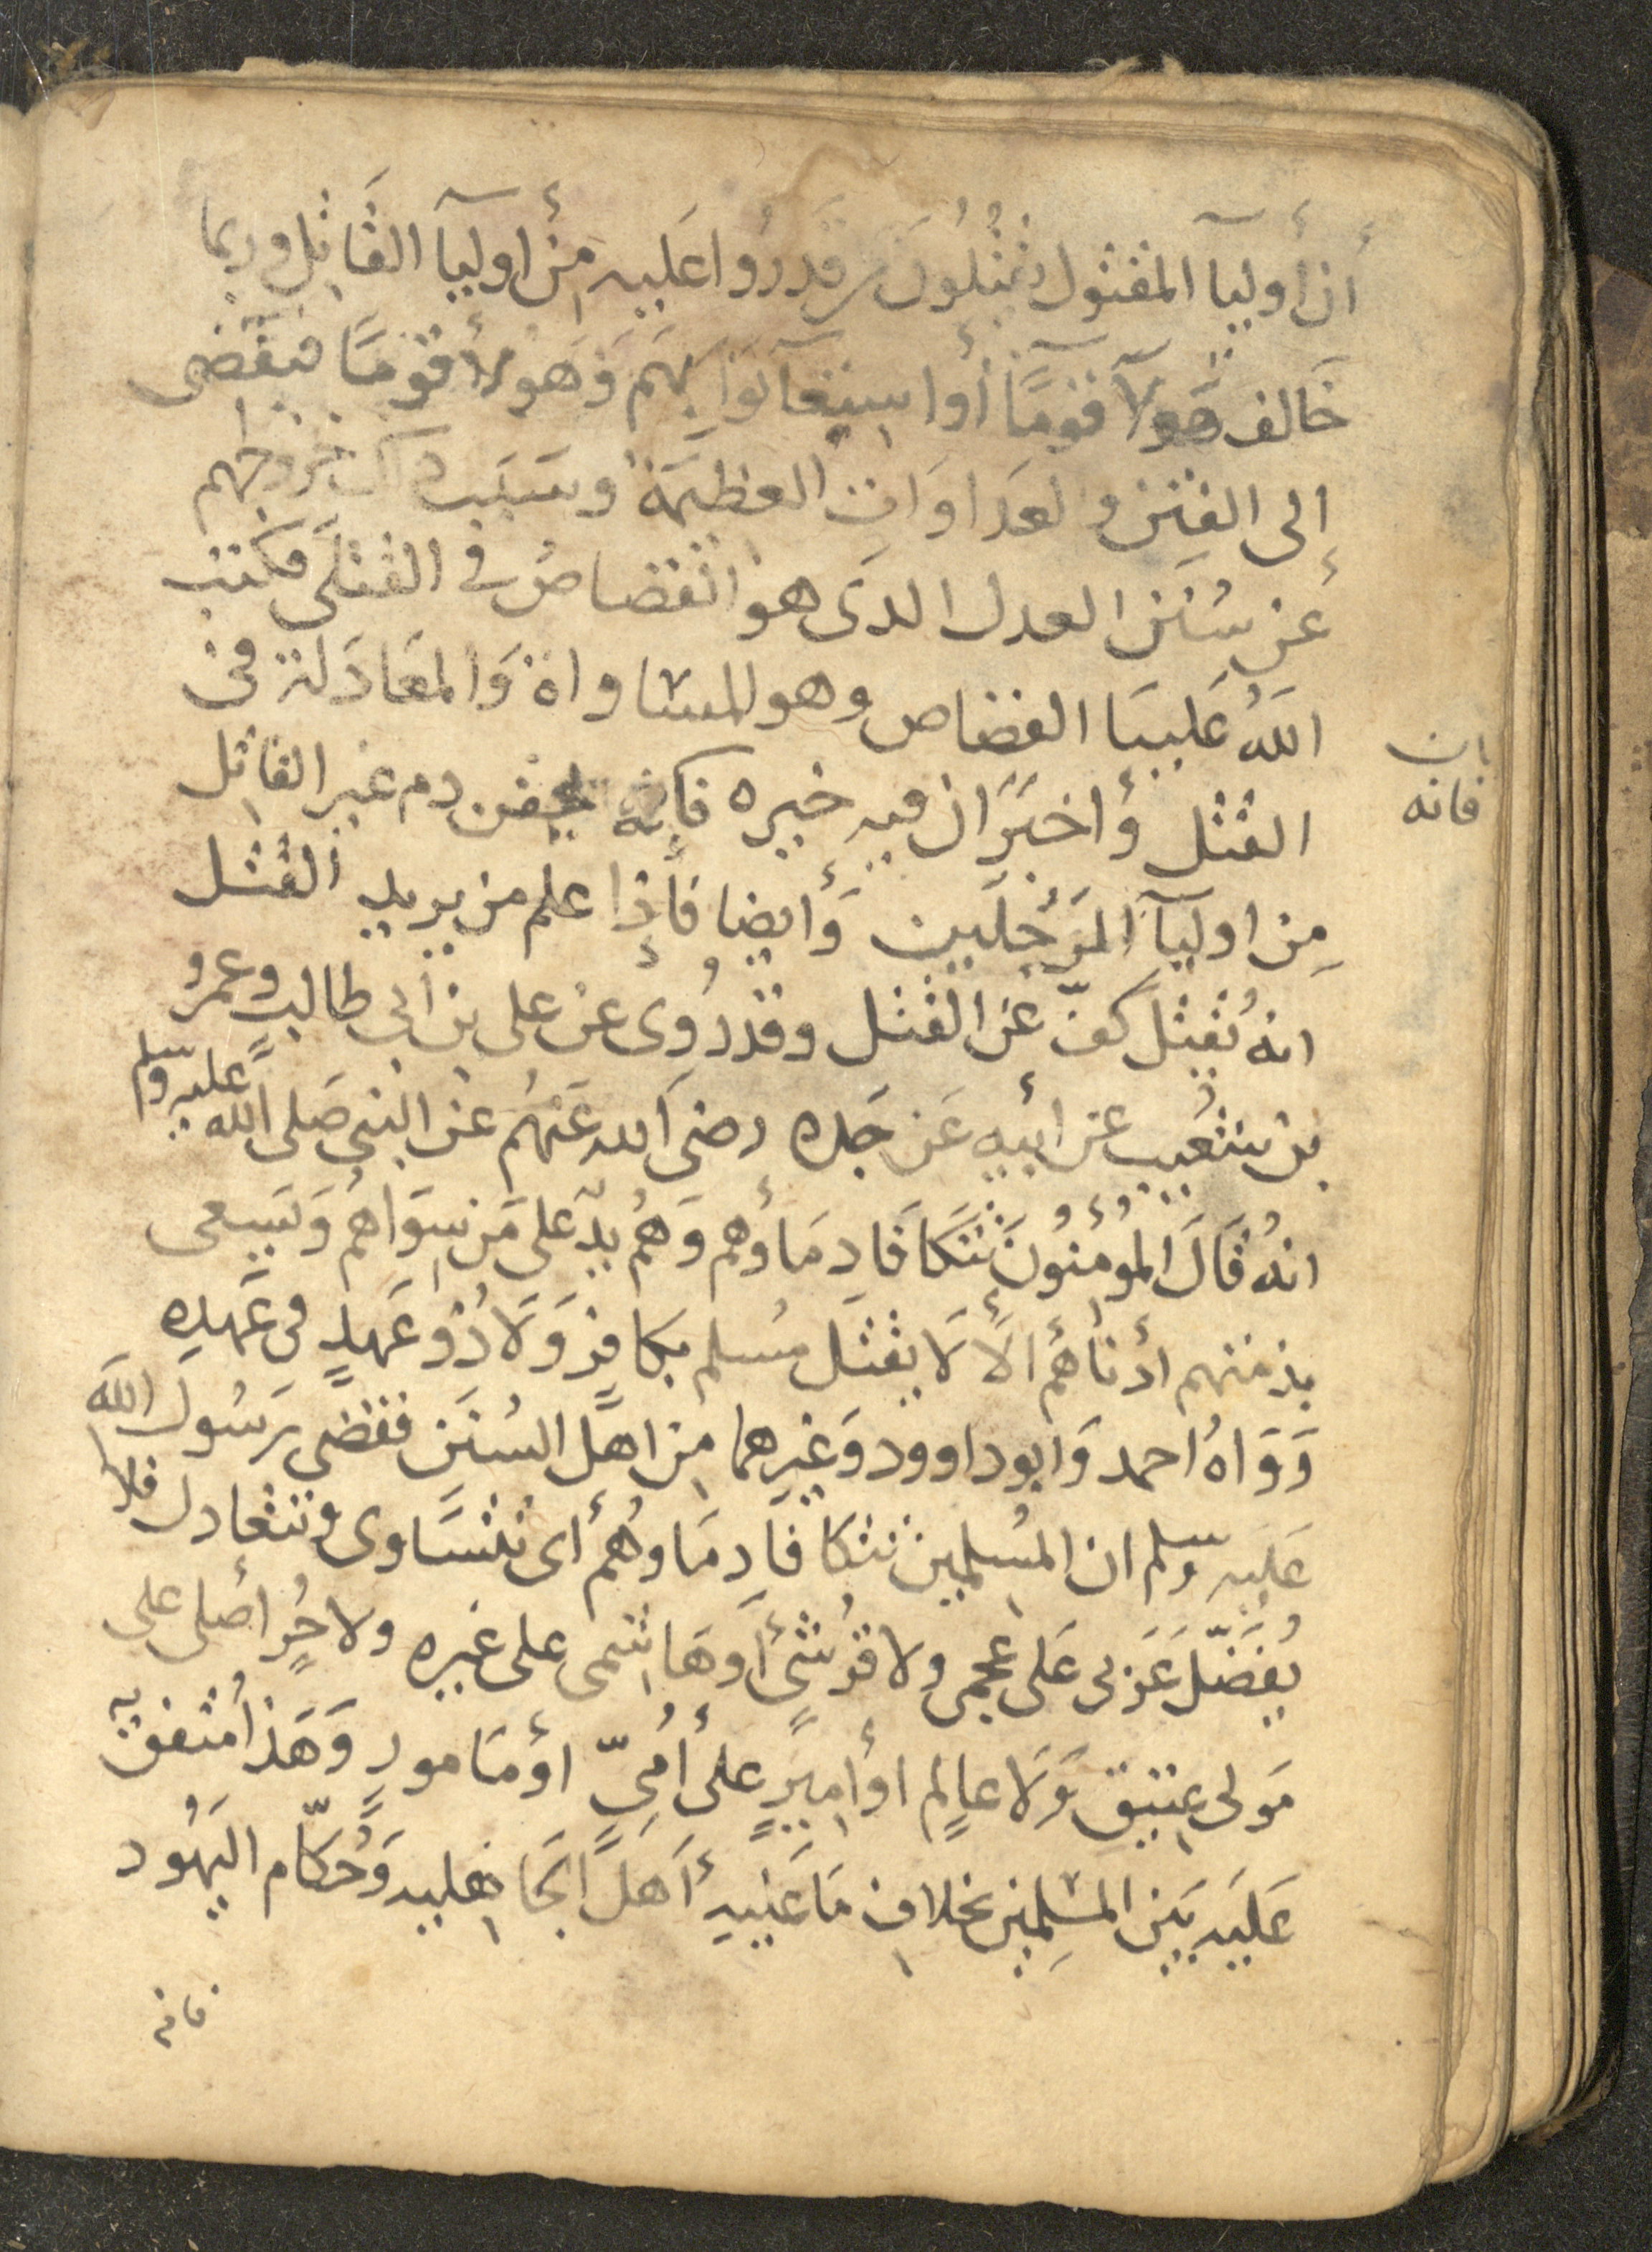 أن أوليآ المقتول يقتلون من قدروا عليه من اوليآ القاتل وربما
خالف هولآ قومًا أوا ستعانوا بهم وَهولأ قومًا فيفضى
إلى الفتن و لعدا وَات العظيمة وسبب ذ لك خروجهم
عن سُنَن العدل الدى هو القصاص في القتلى فكتب
اللَّهُ عَلينا القصاص وهو المسا واة وَالمعَادَلة في
القتل وأخبَرَ ان فيه خيره فإنه يحقن دم غير القاتل
مِن اوليآ المرَجُلين وَأيضا فأذا علم من يريد القتل
انهُ يُقتل كفّ عن القتل وقد رُوى عن على بن أبى طالب وعمرُ
بن شعيب عن أبيه عَن جَده رضى الله عَنهُم عن النبى صَلى الله عليه وسلم
انهُ قَالَ المُؤمِنُونَ تتكَا فَا دِمَاؤهم وَهُم يدٌ على مَن سِوَاهُم وَيَسعى
بذمتهم أدنَاهُم ألَا لَا يقتَل مُسلم بكافر وَلَا ذُو عَهدٍ فى عَهدِه
وَوَاهُ احمد وَابوداوود وَغيرهما مِن اهل السُنَن فقضى رَسُول الله
عَليه وسلم ان المُسلمين تتكا فا دِمَاوهُم أى تتسَاوى وتتعادل فلا
يُفَضّل عَرَبى عَلى عجمى ولا قُرشىٍ أوهَاشمى على غيره ولا حُرٍ أصلى على
مَولى عتيق وَلَا عالِم أو أميرٍ على أُمِىّ أو مَامورٍ وَهَذا مُتفق
عَليَه بَين المسلِمين بخلاف مَا عَليهِ أهَل الجَاهليه وَحُكّام اليَهُود
فانه
ان
فانه